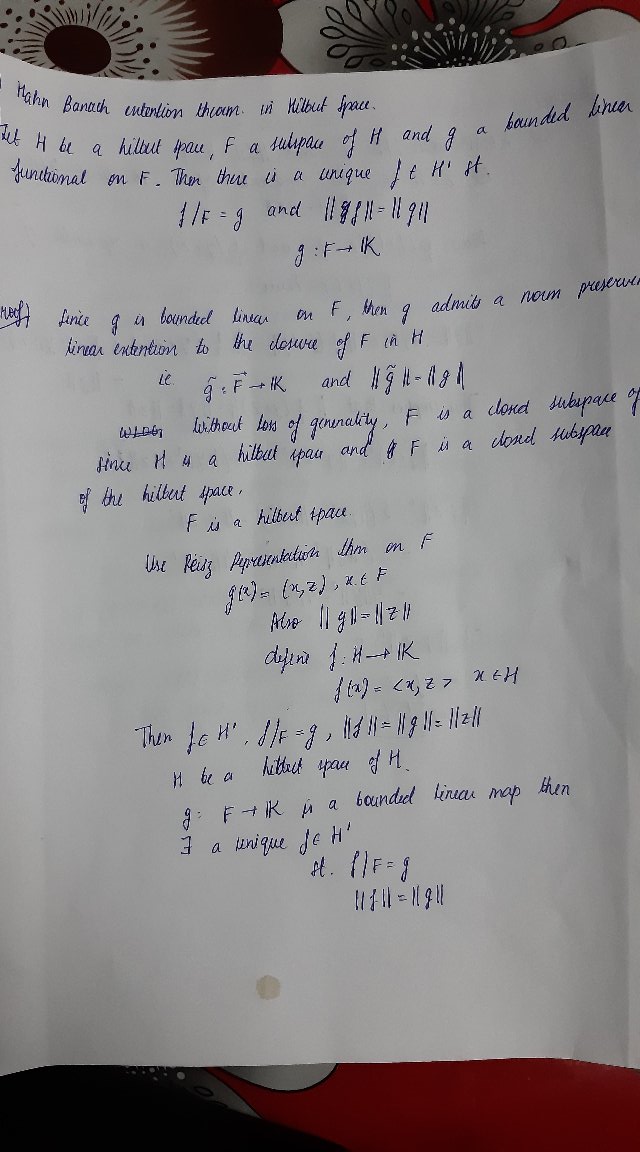 Hahn Banach extention theorm. in Hilbert Space.
Let H be a hilbert space, F a subspace of H and g a bounded linear
functional on F. Then there is a unique f ∈ H' st.
f/F = g and ||f|| = ||g||
g : F → K
Proof) Since g is bounded linear on F, then g admits a norm preservin
linear extention to the closure of F in H
ie. g̃ : F̄ → K and ||g̃|| = ||g||
Without Loss of generality, F is a closed subspace of
since H is a hilbert space and F is a closed subspace
of the hilbert space.
F is a hilbert space.
Use Reisz Representation thm on F
g(x) = (x, z), x ∈ F
Also ||g|| = ||z||
define f : H → K
f(x) = <x, z> x ∈ H
Then f ∈ H', f/F = g, ||f|| = ||g|| = ||z||
H be a hilbert space of H.
g: F → K is a bounded linear map then
∃ a unique f ∈ H'
st. f/F = g
||f|| = ||g||